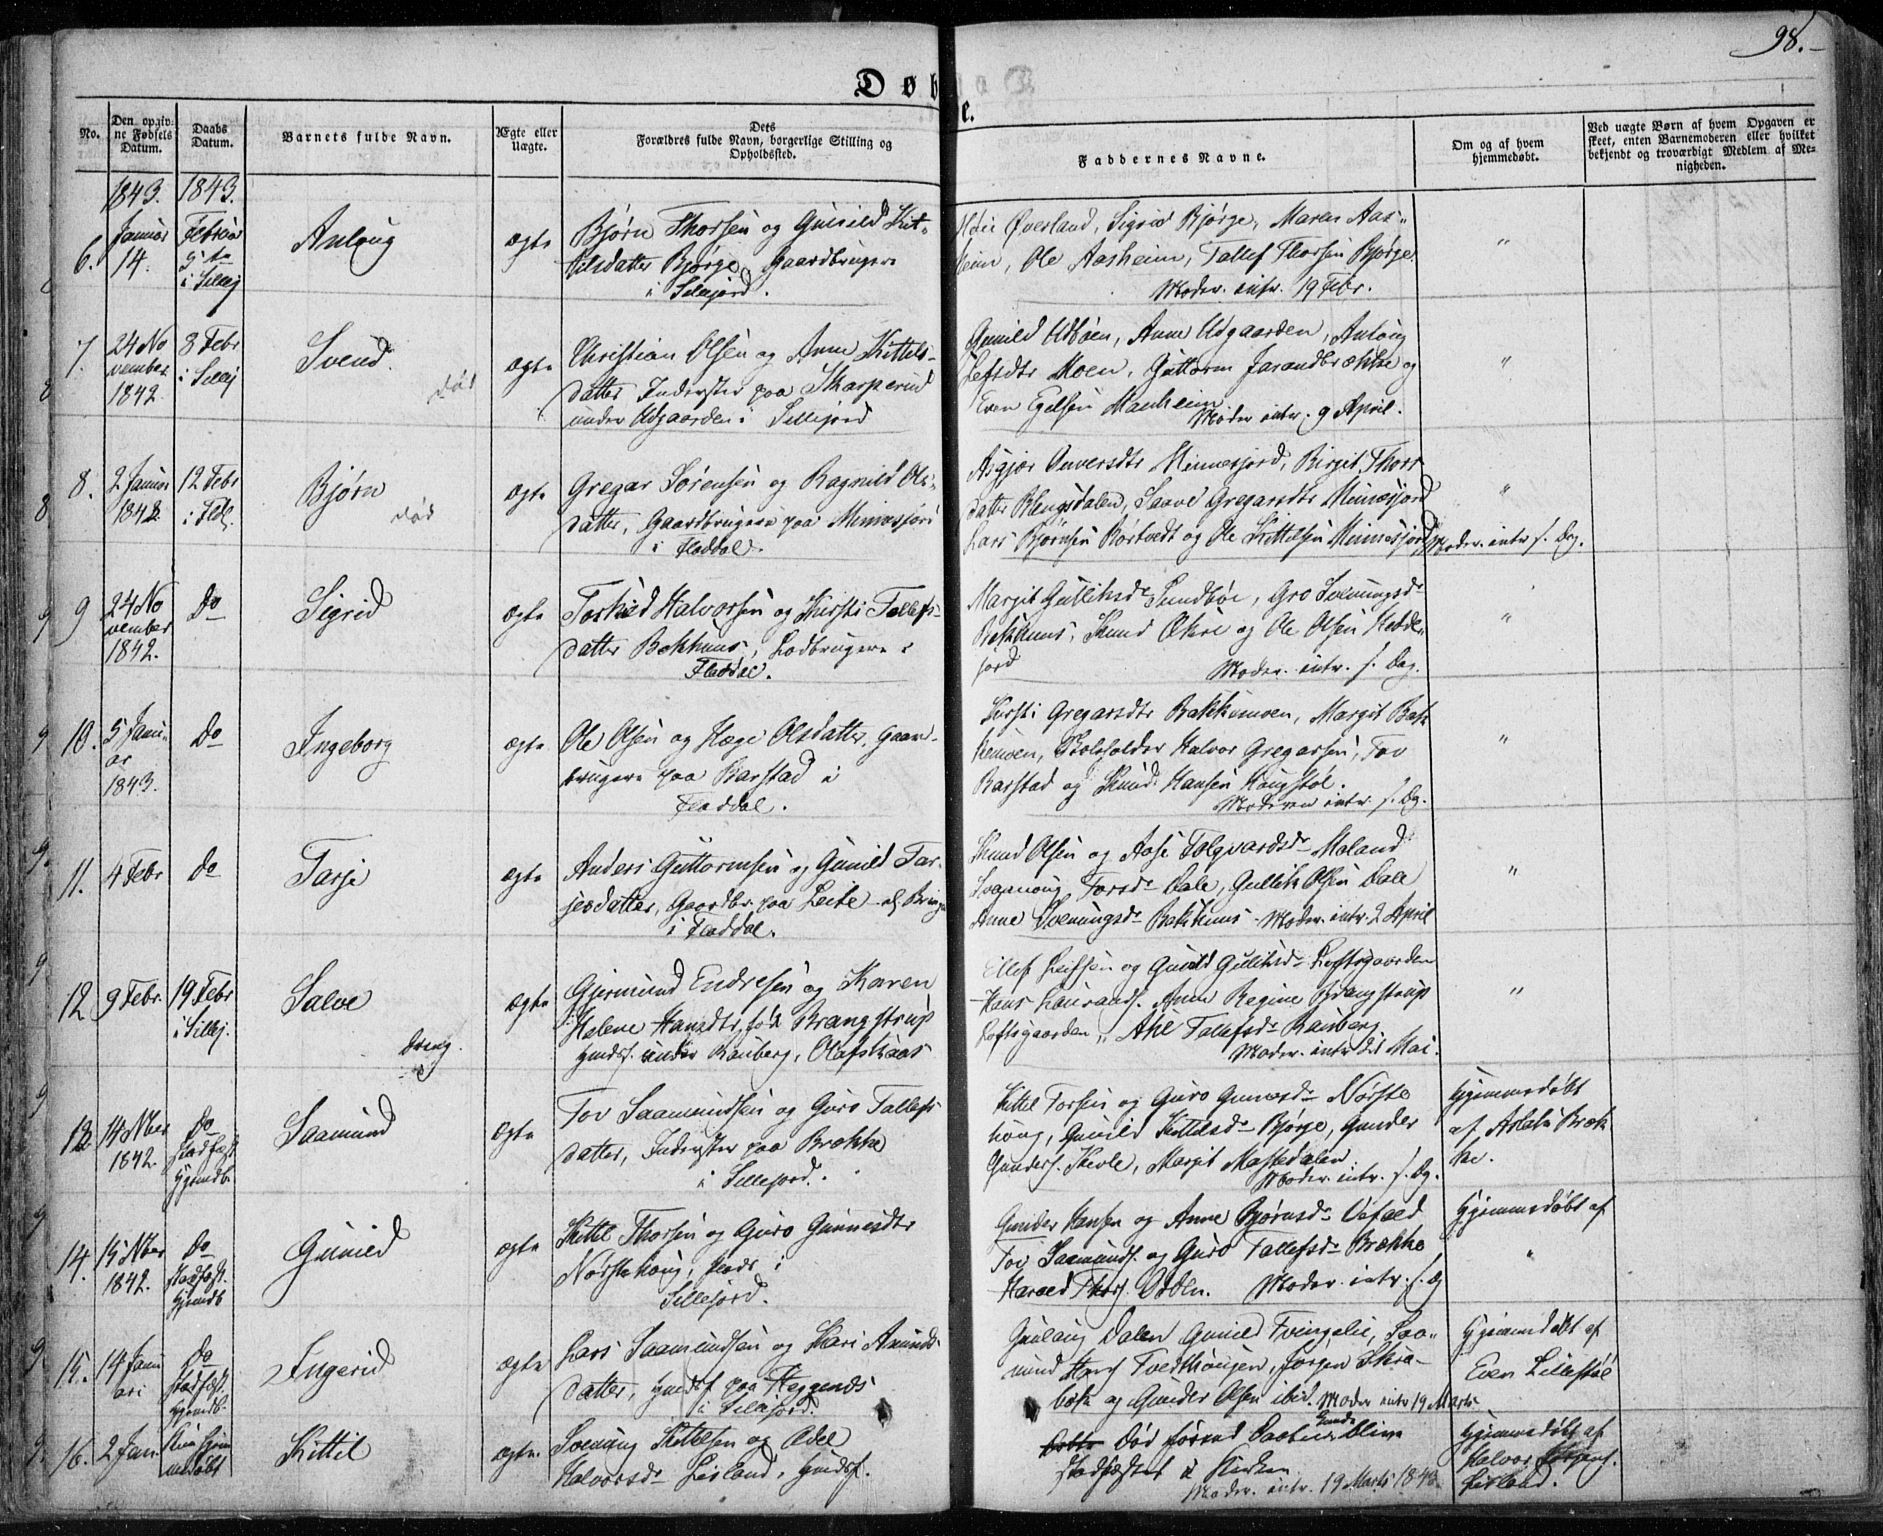 98.
Døbte.
No.
Den opgiv-
ne Fødsels
Datum.
Daabs
Datum.
Barnets fulde Navn.
Ægte eller
Uægte.
Dets
Forældres fulde Navn, borgerlige Stilling og
Opholdssted.
Faddernes Navne.
Om og af hvem
hjemmedøbt.
Ved uægte Børn af hvem Opgaven er
skeet, enten Barnemoderen eller hvilket
bekjendt og troværdigt Medlem af Me-
nigheden.
1843. 1843.
6.
Januar
14.
Februar
5te
i Sillej
Anloug
ægte
Bjørn Thorsen og Gunild Kit-
tilsdatter Bjørge, Gaardbrugere
i Sillejord.
Øverland, Sigrid Bjørge, Maren Aas-
heim, Ole Aasheim, Tallef Thorsen Bjørge
Moder. intr. 19 Febr.
"
7.
24 No
vember
1842
8 Febr
i Sillej
Svend
død
ægte
Christian Olsen og Anne Kittels-
datter Inderster paa Skarperud
under Utgaarden i Sillejord
Gunild Utbøen, Anne Utgaarden, Anloug
Lefsdtr Moen, Guttorm Jarandbrække og
Even Egelsen Manheim
Moder intr. 9 April.
"
8.
2 Januar
1843
12 Febr
i Flad.
Bjørn
død
ægte
Gregar Sørensen og Ragnild Ols-
datter, Gaardbrugere paa Minnesjord
i Fladdal.
Asgjær Minnesjord, Birgit Thors
datter Blengsdalen, Saave Gregarsdtr Minnesjord
Lars Bjørnsen Rørtvedt og Ole Kittelsen Minnesjord
Moder. intr s. Dag.
"
9
24 No
vember
1842.
Do
Sigrid
ægte
Torkild Halvorsen og Kirsti Tallefs-
datter Bakhuus, Lodbrugere i
Fladdal.
Margit Gulliksdr Sundbøe, Gro Svenungsdr
Bakhuus, Knud Økse og Ole Olsen Hedde-
jord
Moder. intr. s. Dag.
"
10.
5 Janu-
ar
1843.
Do
Ingeborg
ægte
Ole Olsen og Hæge Olsdatter, Gaard-
brugere paa Barstad i
Fladdal.
Kirsti Gregarsdtr Bakkemoen, Margit Bak
kemoen, Skoleholder Halvor Gregarsen, Tov
Barstad og Knud Hansen Haugstøl.
Moderen intr. s. Dg.
"
11.
4 Febr
Do
Tarje
ægte
Anders Guttormsen og Gunild Tar-
jesdatter, Gaardbr. paa Leite
i Fladdal.
Knud Olsen og Aase Folqvardsdr Moland
Torsdr Dale, Gullik Olsen Dale
Anne Svenungsdr Bakkhuus - Moder. intr. 2 April
"
12
9 Febr.
19 Febr
i Sillej.
Salve
Dreng.
ægte
Gjermund Endresen og Karen
Helene Hansdtr, fød Brangstrup
Huusf. under Rauberg, Olafskaas
Ellef Leifsen og Gunild Gulliksdr Loftsgaarden
Hans Laurands. Anne Regine Brangstrup
Loftsgaarden, Aase Tallefsdr Rauberg
Moder. intr 21 Mai.
"
13
14 Nber
1842.
Do
stadfæst.
hjemdb.
Saamund
ægte
Tov Saamundsen og Guro Tallefs
datter, Inderster paa Brække
i Sillejord.
Kittel Torsen og Guro Gunnesdr Nørste
houg, Gunild Kittelsdr Bjørge, Gunder
Gunders. Kivle, Margit Mastedalen
Moder. intr. s. Dg.
Hjemmedøbt
af Aslak Bræk
ke.
14.
15 Nber
1842.
Do
stadfæst.
hjemdb
Gunild
ægte
Kittel Thorsen og Guro Gunnesdtr
Nørstehoug, Plads i
Sillejord.
Gunder Hansen og Anne Bjørnsdr Vefald
Tov Saamunds. og Guro Tallefsdr Brække
Harald Thors. Odden. Moder. intr. s. Dg
Hjemmedøbt af
"
15.
14 Janu
ari
Do
stadfæst.
hjemdb.
Ingerid
ægte
Lars Saamundsen og Kari Amunds
datter, Huusf. paa Heggenæs
i Sillejord.
Gunlaug Dalen Gunild Tvingelie, Saa-
mund Hans. Tvedthougen, Jørgen Skra-
bek og Gunder Olsen ibid. Moder intr 19 Marts
Hjemmedøbt af
Even Lillestøl
16.
2 Jan.
Kun hjem
medøbt
Kittil
ægte.
Svenung Kittelsen og Adel
Halvorsdr Lisland, Huusf.
Død førend Daaben kunde blive
stadfæstet i Kirken
Moder. intr. 19 Marts 1843
Hjemmedøbt af
Halvor
Lisland.